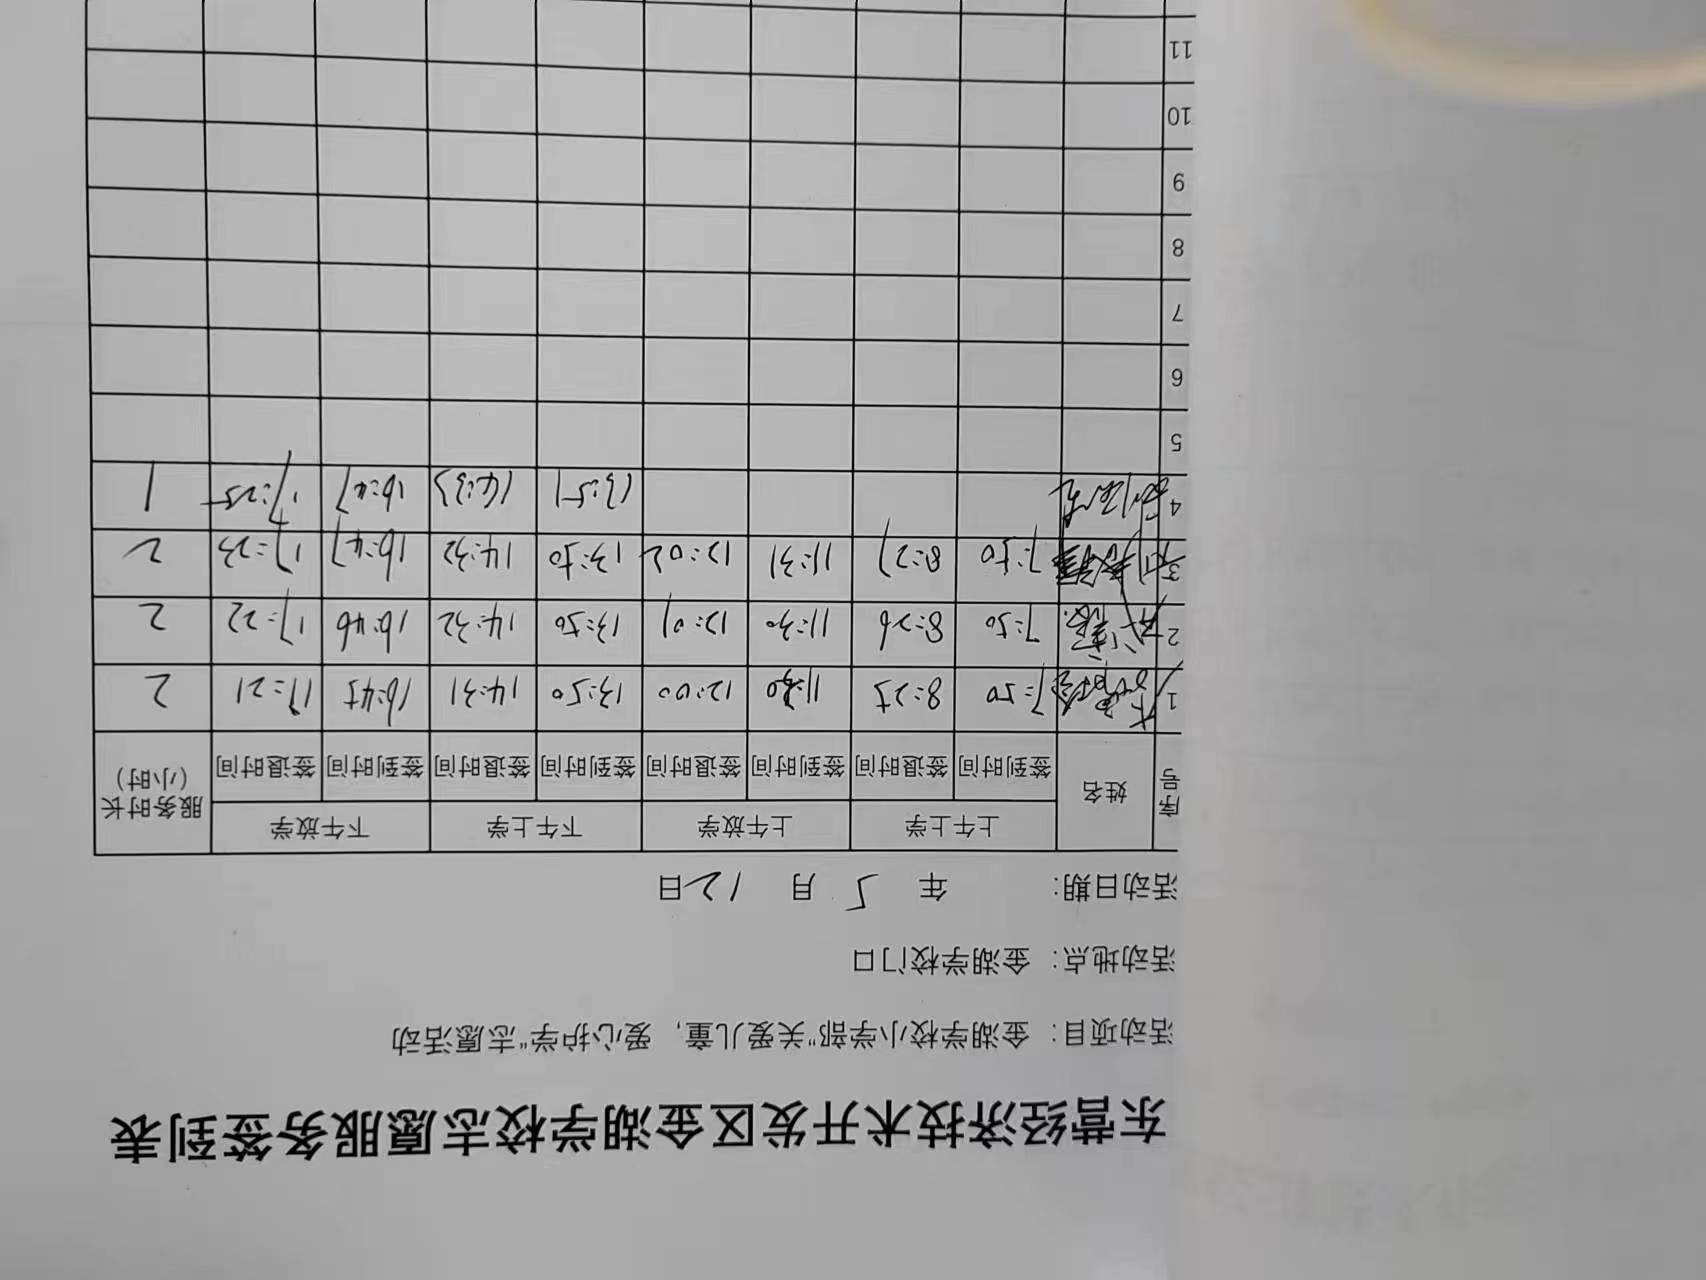 东营经济技术开发区金湖学校志愿服务签到表
活动项目：金湖学校小学部“关爱儿童，爱心护学”志愿活动
活动地点：金湖学校门口
活动日期： 年 5 月 12日
序号 姓名 上午上学 上午放学 下午上学 下午放学 服务时长（小时）
签到时间 签退时间 签到时间 签退时间 签到时间 签退时间 签到时间 签退时间
1 7:50 8:25 11:30 12:00 13:50 14:31 16:45 17:21 2
2 7:50 8:26 11:30 12:01 13:50 14:32 16:46 17:22 2
3 7:50 8:27 11:31 12:02 13:50 14:32 16:47 17:23 2
4 13:51 14:33 16:47 17:25 1
5
6
7
8
9
10
11